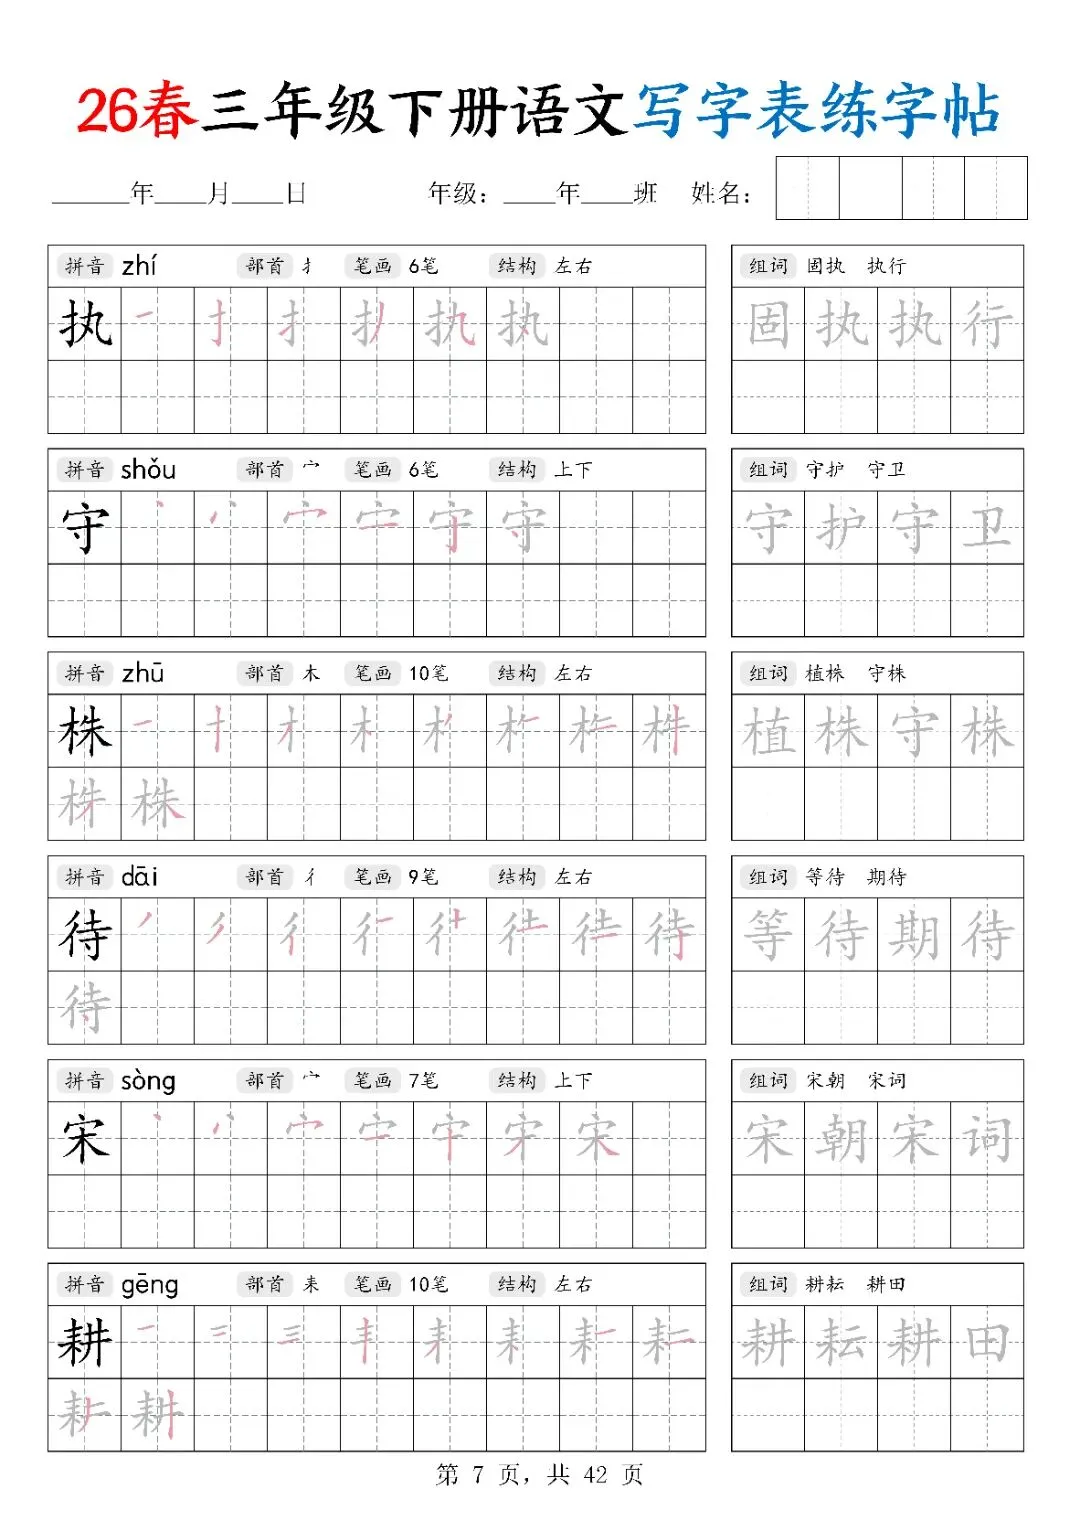 26春三年级下册语文写字表练字帖
______年____月____日 年级：____年____班 姓名：
拼音 zhí 部首 扌 笔画 6笔 结构 左右
组词 固执 执行
执 一 扌 扌 扌 执 执
固 执 执 行
拼音 shǒu 部首 宀 笔画 6笔 结构 上下
组词 守护 守卫
守 守
守 护 守 卫
拼音 zhū 部首 木 笔画 10笔 结构 左右
组词 植株 守株
株
植 株 守 株
株 株
拼音 dāi 部首 彳 笔画 9笔 结构 左右
组词 等待 期待
待 待
等 待 期 待
待
拼音 sòng 部首 宀 笔画 7笔 结构 上下
组词 宋朝 宋词
宋 宋
宋 朝 宋 词
拼音 gēng 部首 耒 笔画 10笔 结构 左右
组词 耕耘 耕田
耕
耕 耘 耕 田
耕
第 7 页，共 42 页